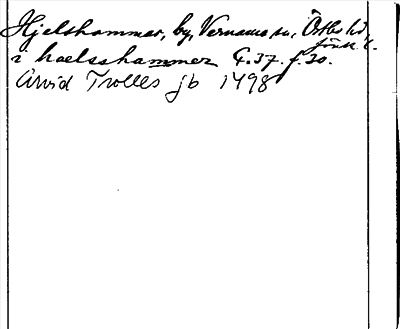 Hjelshammar, by, Vernamo sn, Östbo hd,
Jönk. l.
i haelsshammer C. 37. f. 30.
Arvid Trolles jb 1498